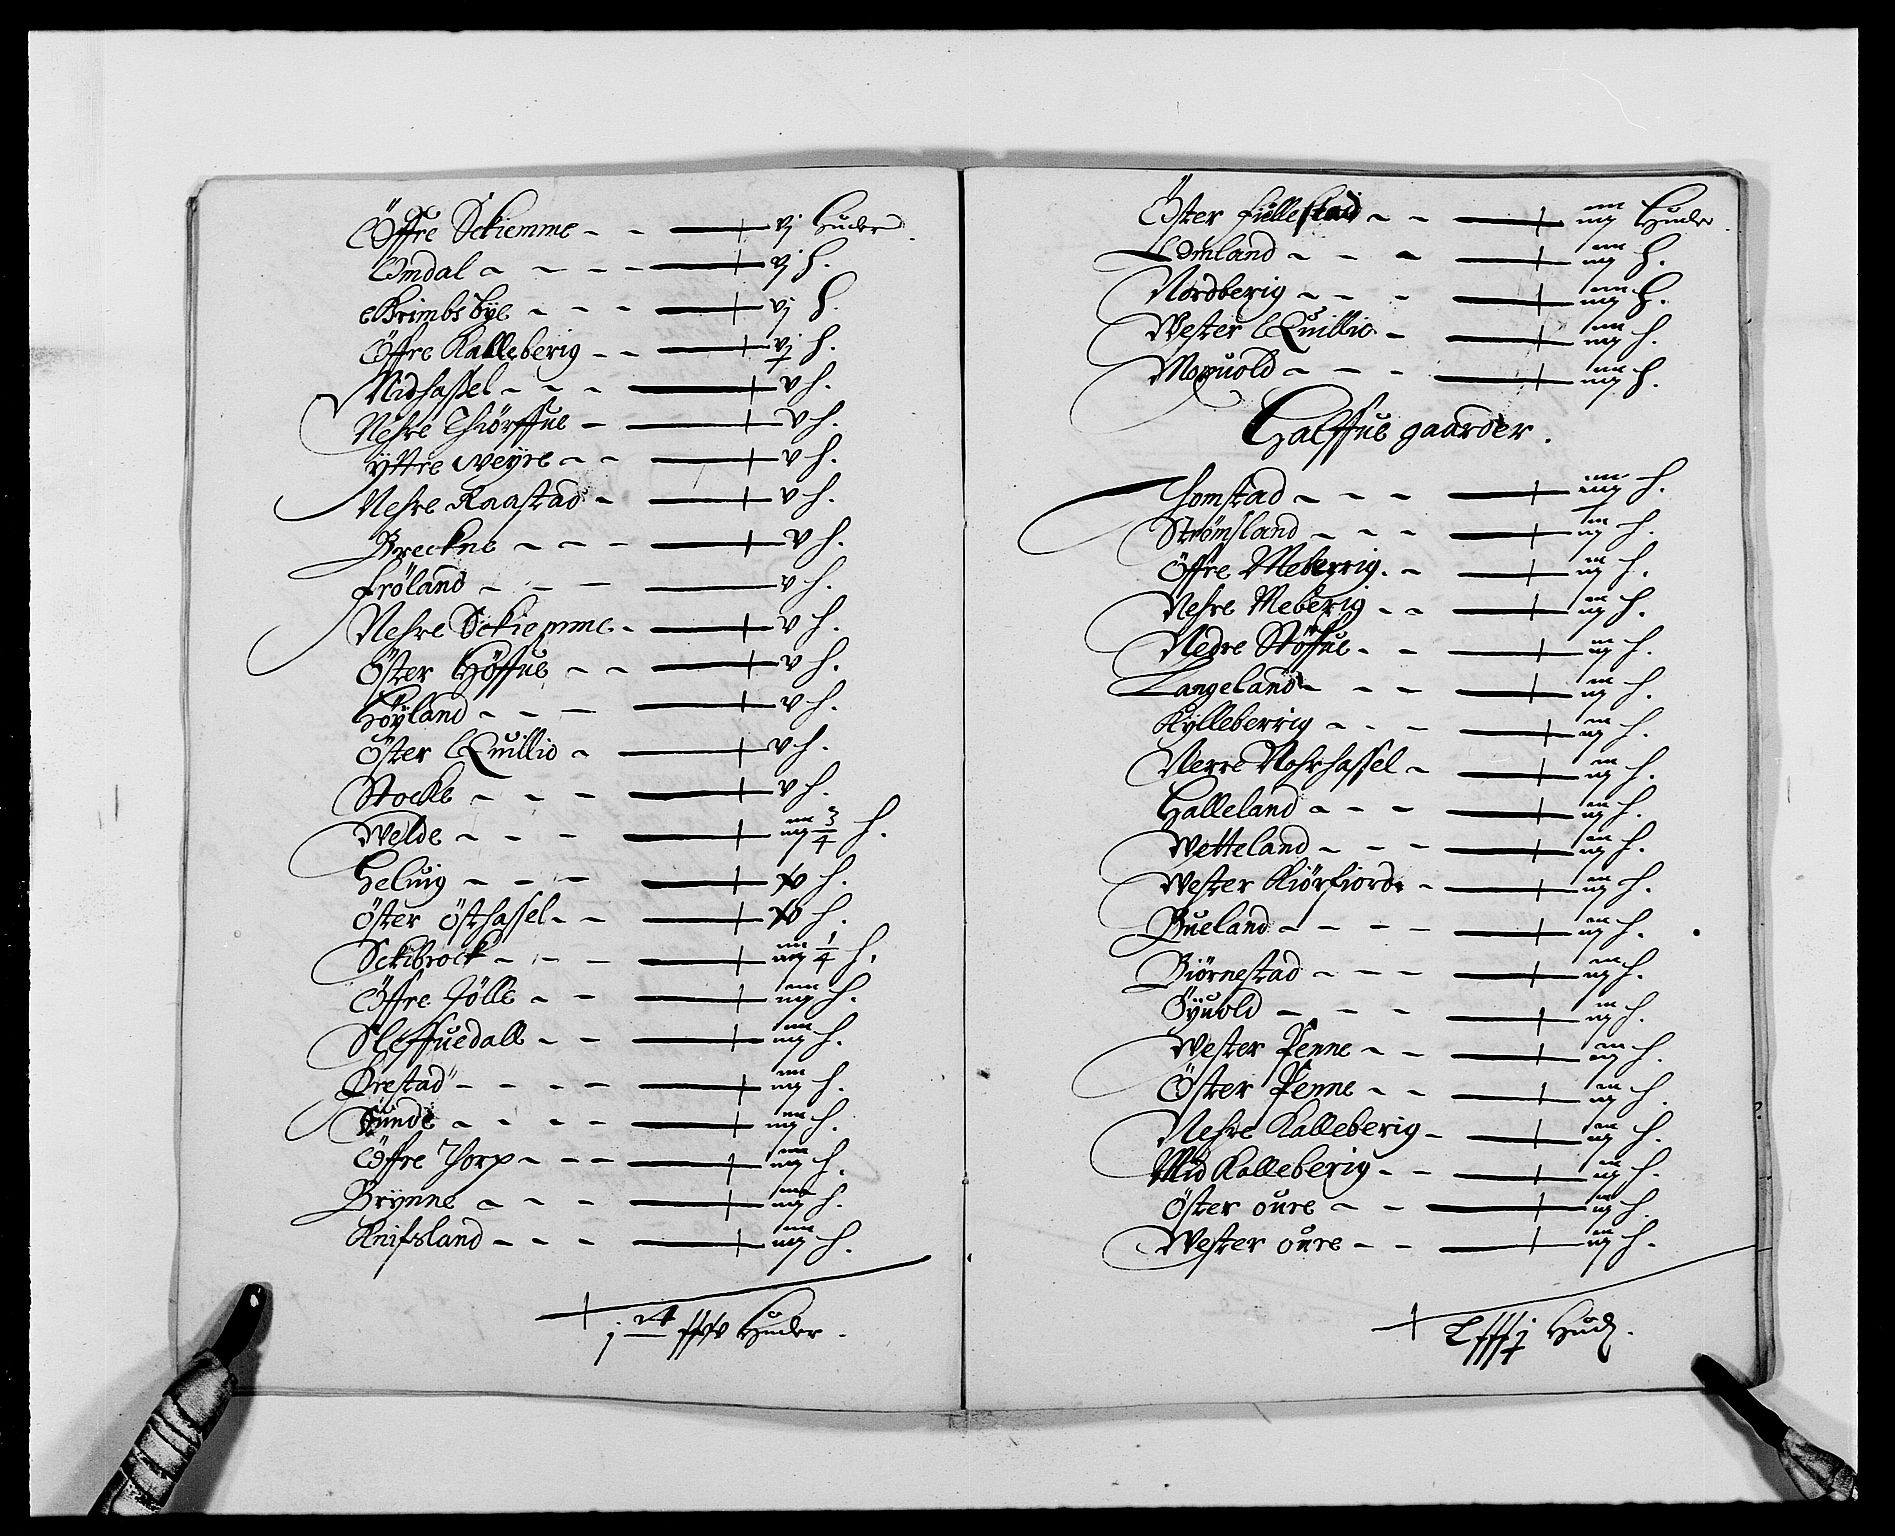 Öffre Skiemme - - vj Huder.
Omdal - - - - vj h.
Grimbs bye - - - vj h.
Öffre Kalleberig - - vj h.
Midhassel - - - v h.
Nehre Thiörffue - v h.
Yttre weyre - - v h.
Nehre Raastad - v h.
Breckne - - - v h.
fröland - - - v h.
Nehre Skiemme - v h.
Öster Höffue - - v h.
Höyland - - - v h.
Öster Quillio - v h.
Stocke - - - v h.
Welde - - - iiij 3/4 h.
Heluig - - - h.
Öster Östhassel - - h.
Skibrock - - - iiij 1/4 h.
Öffre Jölle - - iiij h.
Sleffuedall - - iiij h.
Ørestad - - - - iiij h.
Sunde - - - - iiij h.
Öffre Thorp - - - iiij h.
Brynne - - - iiij h.
Knifsland - - - iiij h.
Huder.
Öster fiellestad - - iiij Huder.
Omland - - - iiij h.
Nordberig - - - iiij h.
Wester Quillio - iiij h.
Moxuold - - - iiij h.
Halffue gaarder.
Thomstad - - - iiij h.
Strömsland - - - iij h.
Öffre Meberrig. - iij h.
Nehre Meberig - - iij h.
Nedre Stöffue - - iij h.
Langeland - - - iij h.
Kylleberrig - - - iij h.
Nerre Nohrhassel - iij h.
Halleland - - - iij h.
Wetteland - - - iij h.
Wester Kiörfiord - iij h.
Bueland - - - - iij h.
Biörnestad - - - iij h.
Öyuold - - - iij h.
Wester Penne - - iij h.
Öster Penne - - iij h.
Nehre Kalleberig - iij h.
Mid Kalleberig - - iij h.
Öster oure - - iij h.
Wester oure - - iij h.